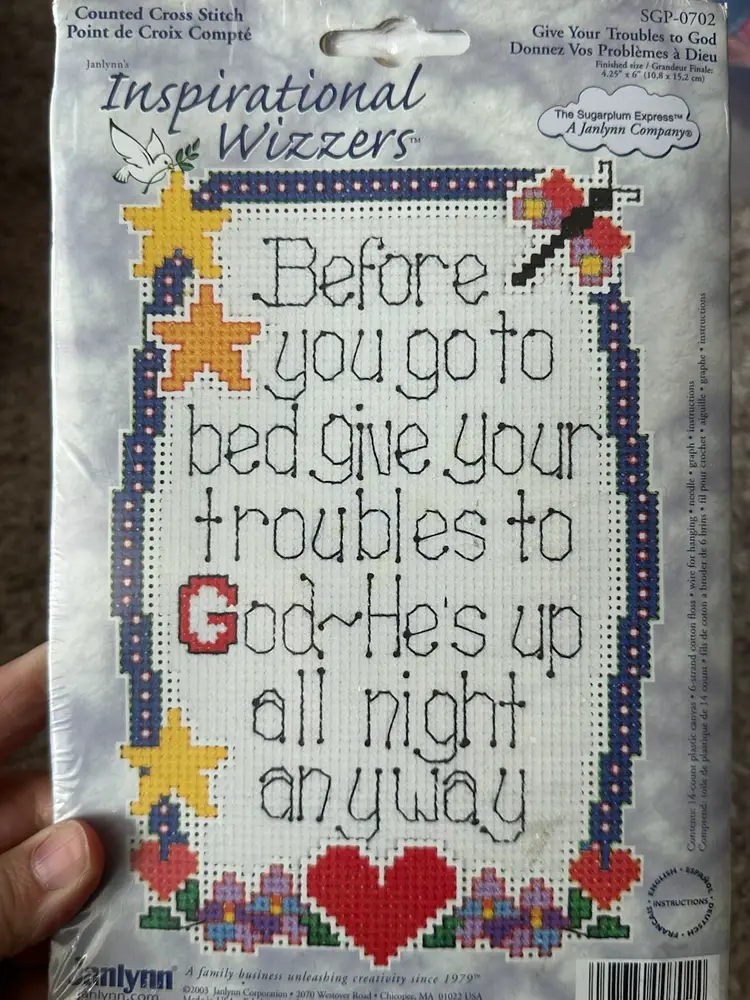 Counted Cross Stitch
Point de Croix Compté
SGP-0702
Give Your Troubles to God
Donnez Vos Problèmes à Dieu
Finished size / Grandeur Finale:
4.25" x 6" (10,8 x 15.2 cm)
Janlynn's
Inspirational
Wizzers™
The Sugarplum Express™
A Janlynn Company®
Before
you go to
bed give your
troubles to
God~He's up
all night
anyway
Contents: 14-count plastic canvas • 6-strand cotton floss • wire for hanging • needle • graph • instructions
Comprend: toile de plastique de 14 count • fils de coton à broder de 6 brins • fil pour crochet • aiguille • graphe • instructions
ENGLISH • ESPAÑOL • DEUTSCH • FRANÇAIS •
INSTRUCTIONS
Janlynn®
A family business unleashing creativity since 1979™
janlynn.com
©2003 Janlynn Corporation • 2070 Westover Road • Chicopee, MA 01022 USA